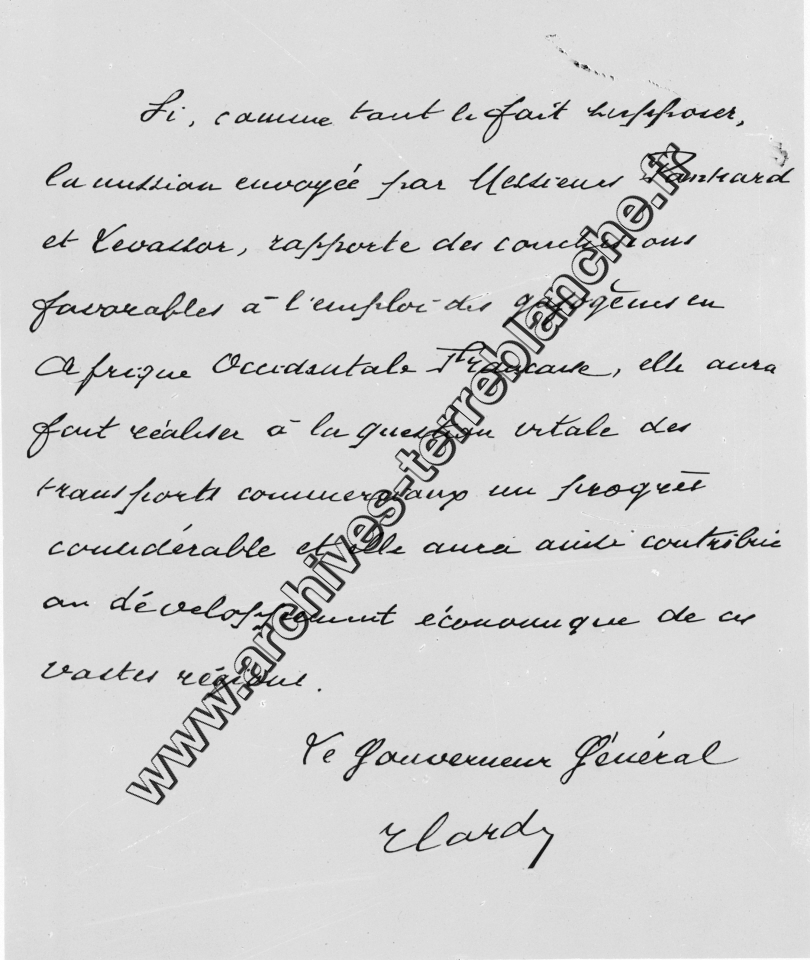 Si, comme tout le fait supposer,
la mission envoyée par Messieurs Panhard
et Levassor, rapporte des conclusions
favorables à l'emploi des gazogènes en
Afrique Occidentale Française, elle aura
fait réaliser à la question vitale des
transports commerciaux un progrès
considérable et elle aura ainsi contribué
au développement économique de ces
vastes régions.
Le Gouverneur Général
www.archives-terreblanche.fr